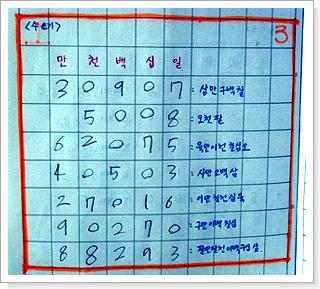 <수쓰기>
3
만 천 백 십 일
3 0 9 0 7 : 삼만 구백 칠
5 0 0 8 : 오천 팔
6 2 0 7 5 : 육만이천 칠십오
4 0 5 0 3 : 사만 오백 삼
2 7 0 1 6 : 이만 칠천 십육
9 0 2 7 0 : 구만이백 칠십
8 8 2 9 3 : 팔만팔천이백구십삼